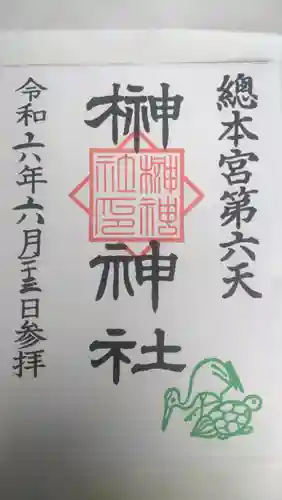 總本宮第六天
榊神社
榊神社印
令和六年六月二十三日参拝